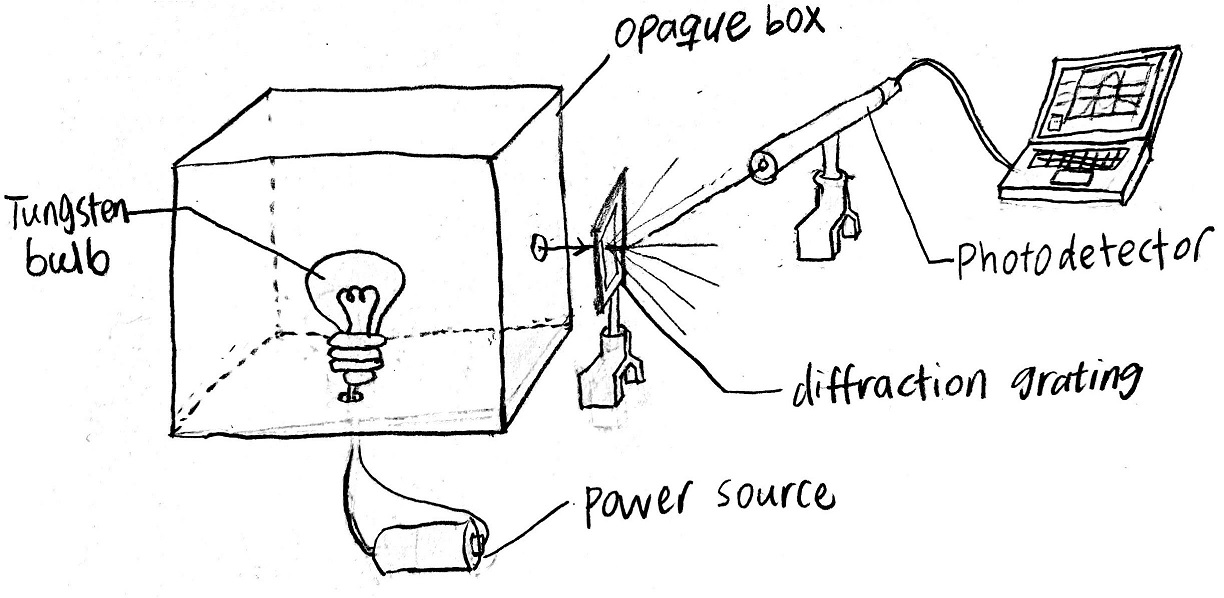 opaque box
Tungsten
bulb
photodetector
diffraction grating
power source